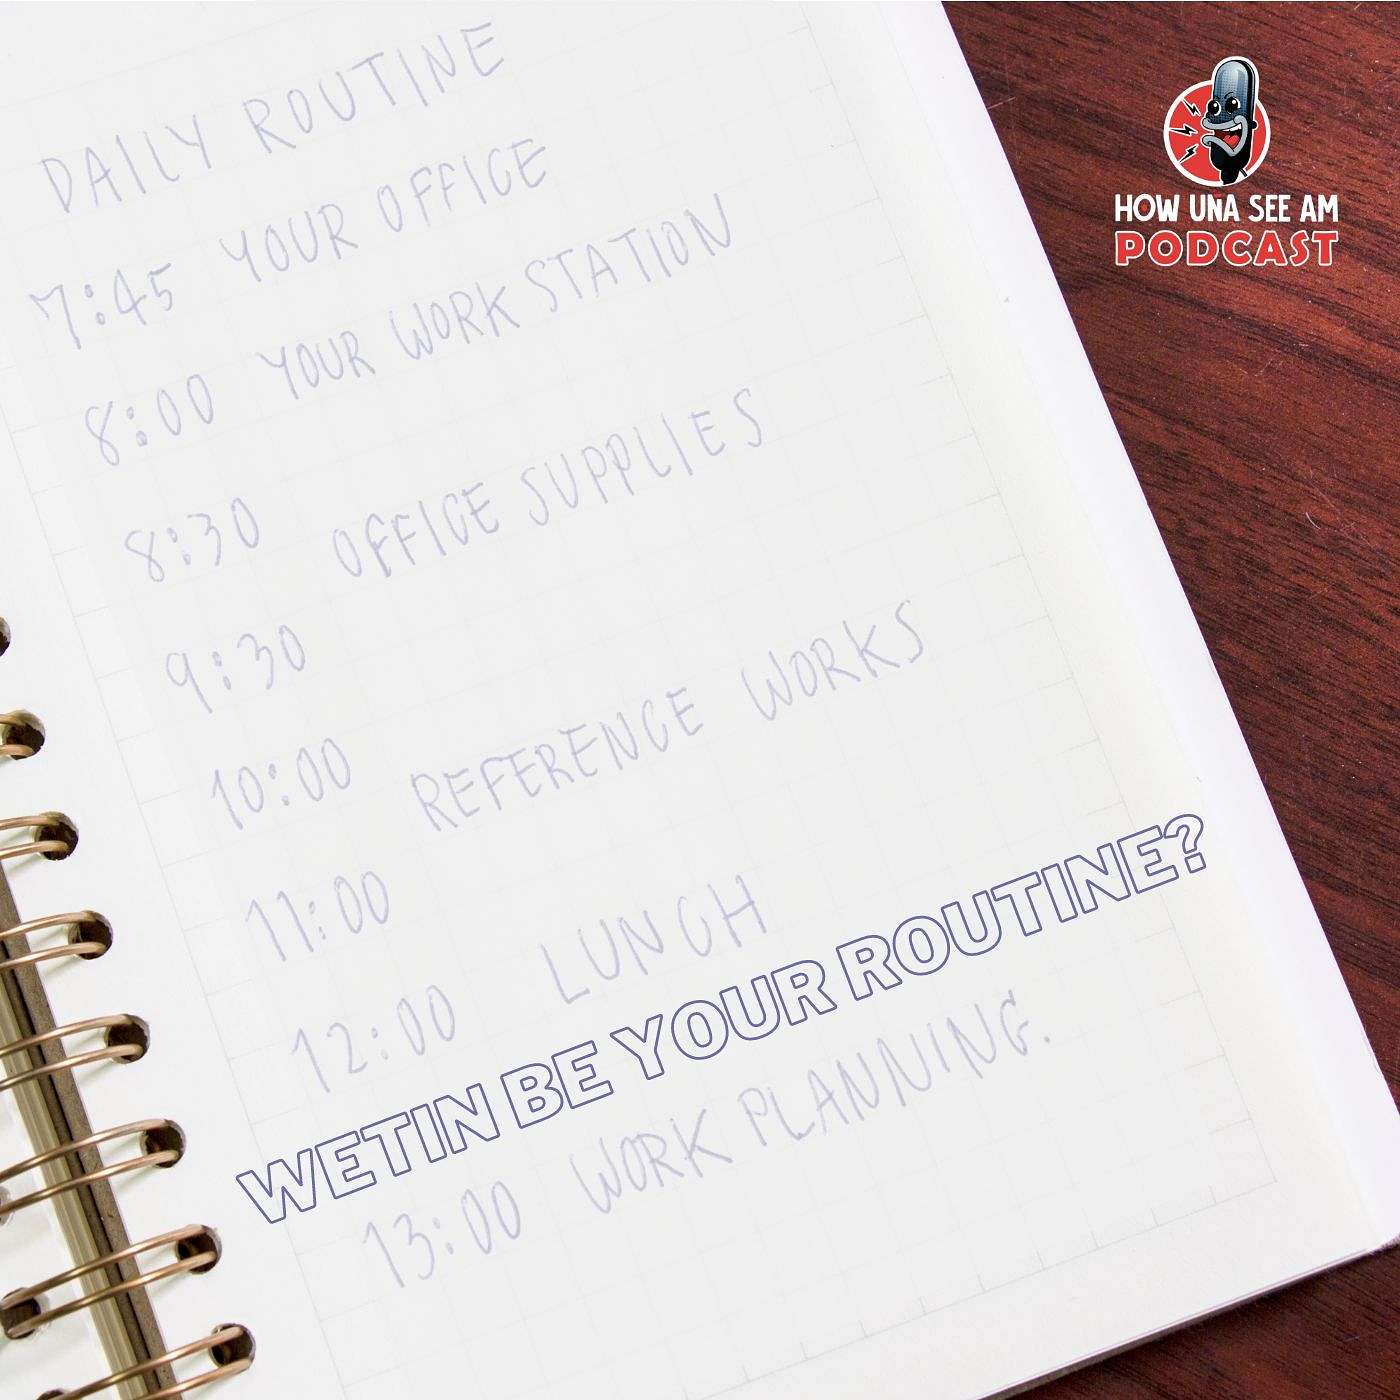 HOW UNA SEE AM
PODCAST
DAILY ROUTINE
7:45 YOUR OFFICE
8:00 YOUR WORK STATION
8:30 OFFICE SUPPLIES
9:30
10:00 REFERENCE WORKS
11:00
12:00 LUNCH
WETIN BE YOUR ROUTINE?
13:00 WORK PLANNING.